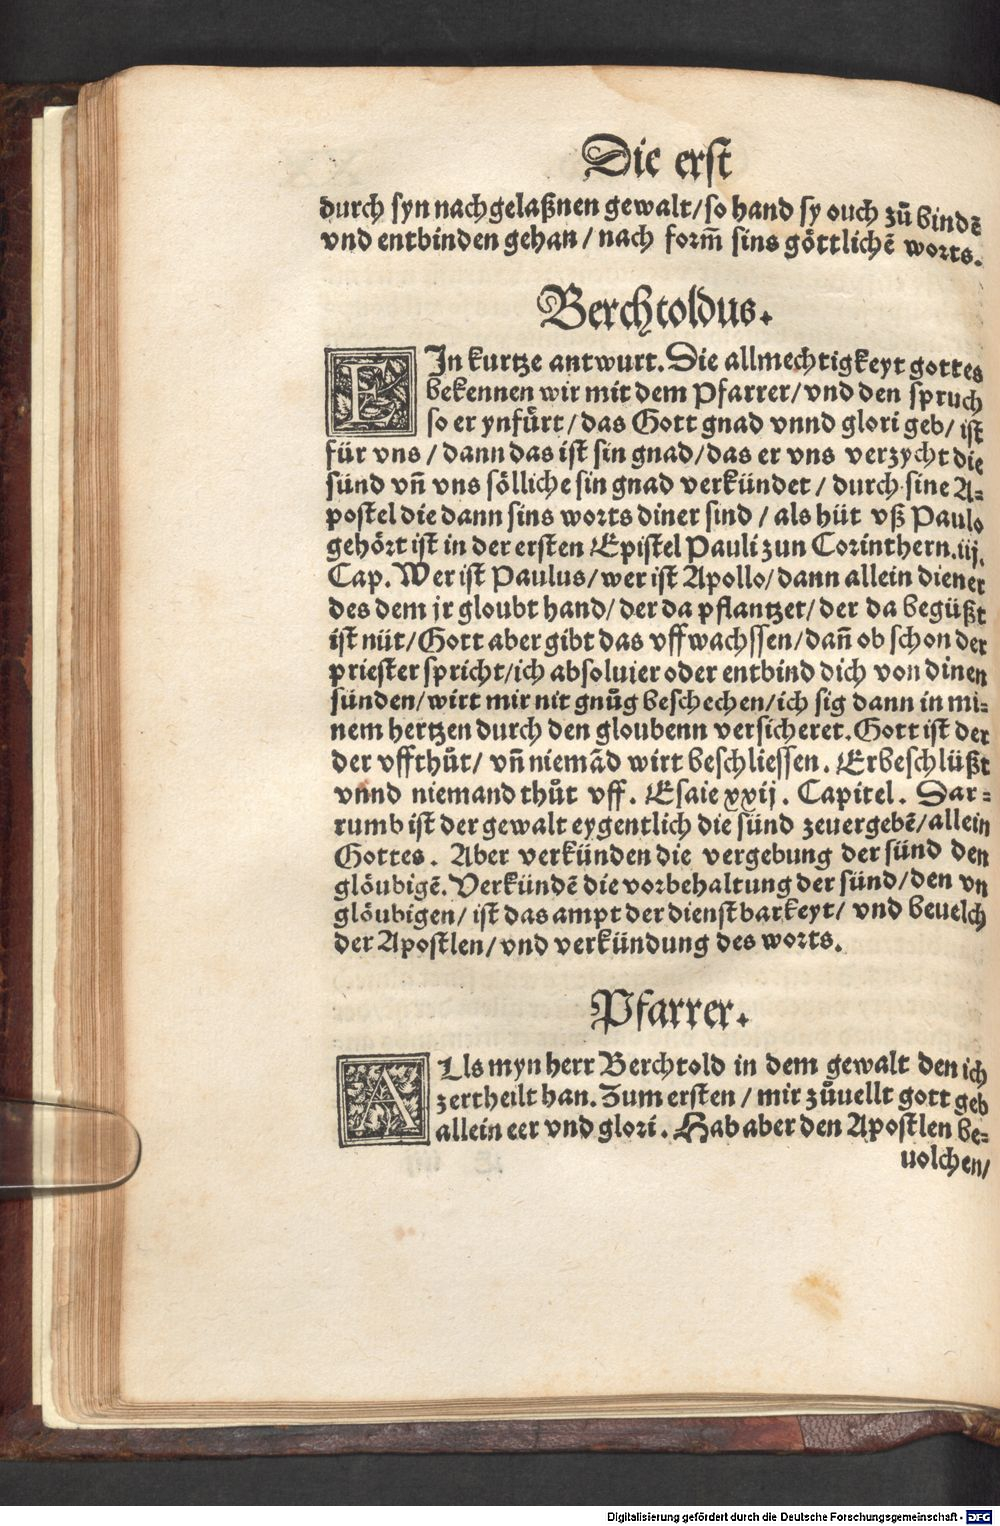 Die erst
durch syn nachgelaßnen gewalt/so hand sy ouch zů bindẽ
vnd entbinden gehan/nach form̃ sins göttlichẽ worts.
Berchtoldus.
EIn kurtze antwurt. Die allmechtigkeyt gottes
bekennen wir mit dem Pfarrer/vnd den spruch
so er ynfürt/das Gott gnad vnnd glori geb/ist
für vns/dann das ist sin gnad/das er vns verzycht die
sünd vñ vns sölliche sin gnad verkündet/durch sine A⸗
postel die dann sins worts diner sind/als hüt vß Paulo
gehört ist in der ersten Epistel Pauli zun Corinthern.iij.
Cap. Wer ist Paulus/wer ist Apollo/dann allein diener
des dem jr gloubt hand/der da pflantzet/der da begüßt
ist nüt/Gott aber gibt das vffwachssen/dañ ob schon der
priester spricht/ich absoluier oder entbind dich von dinen
sünden/wirt mir nit gnůg beschechen/ich sig dann in mi⸗
nem hertzen durch den gloubenn versicheret. Gott ist der
der vffthůt/vñ niemãd wirt beschliessen. Er beschlüßt
vnnd niemand thůt vff. Esaie xxij. Capitel. Dar⸗
rumb ist der gewalt eygentlich die sünd zeuergebẽ/allein
Gottes. Aber verkünden die vergebung der sünd den
glöubigẽ. Verkündẽ die vorbehaltung der sünd/den vn
glöubigen/ist das ampt der dienstbarkeyt/vnd beuelch
der Apostlen/vnd verkündung des worts.
Pfarrer.
ALls myn herr Berchtold in dem gewalt den ich
zertheilt han. Zum ersten/mir zůuellt gott geb
allein eer vnd glori. Hab aber den Apostlen be⸗
uolchen/
Digitalisierung gefördert durch die Deutsche Forschungsgemeinschaft - DFG